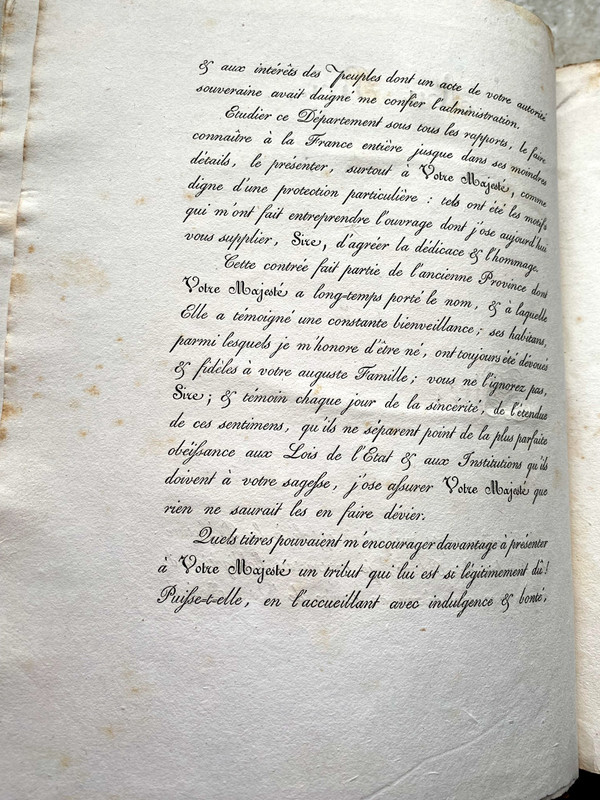 & aux intérêts des Peuples dont un acte de votre autorité
souveraine avait daigné me confier l'administration.
Etudier ce Département sous tous les rapports, le faire
connaître à la France entière jusque dans ses moindres
détails, le présenter, surtout à Votre Majesté, comme
digne d'une protection particulière : tels ont été les motifs
qui m'ont fait entreprendre l'ouvrage dont j'ose aujourd'hui
vous supplier, Sire, d'agréer la dédicace & l'hommage.
Cette contrée fait partie de l'ancienne Province dont
Votre Majesté a long-temps porté le nom, & à laquelle
Elle a témoigné une constante bienveillance ; ses habitans,
parmi lesquels je m'honore d'être né, ont toujours été dévoués
& fidèles à votre auguste Famille ; vous ne l'ignorez pas,
Sire ; & témoin chaque jour de la sincérité, de l'étendue
de ces sentimens, qu'ils ne séparent point de la plus parfaite
obéïſsance aux Lois de l'Etat & aux Institutions qu'ils
doivent à votre sageſse, j'ose aſsurer Votre Majesté que
rien ne saurait les en faire dévier.
Quels titres pouvaient m'encourager davantage à présenter
à Votre Majesté un tribut qui lui est si légitimement dû !
Puiſse-t-elle, en l'accueillant avec indulgence & bonté,